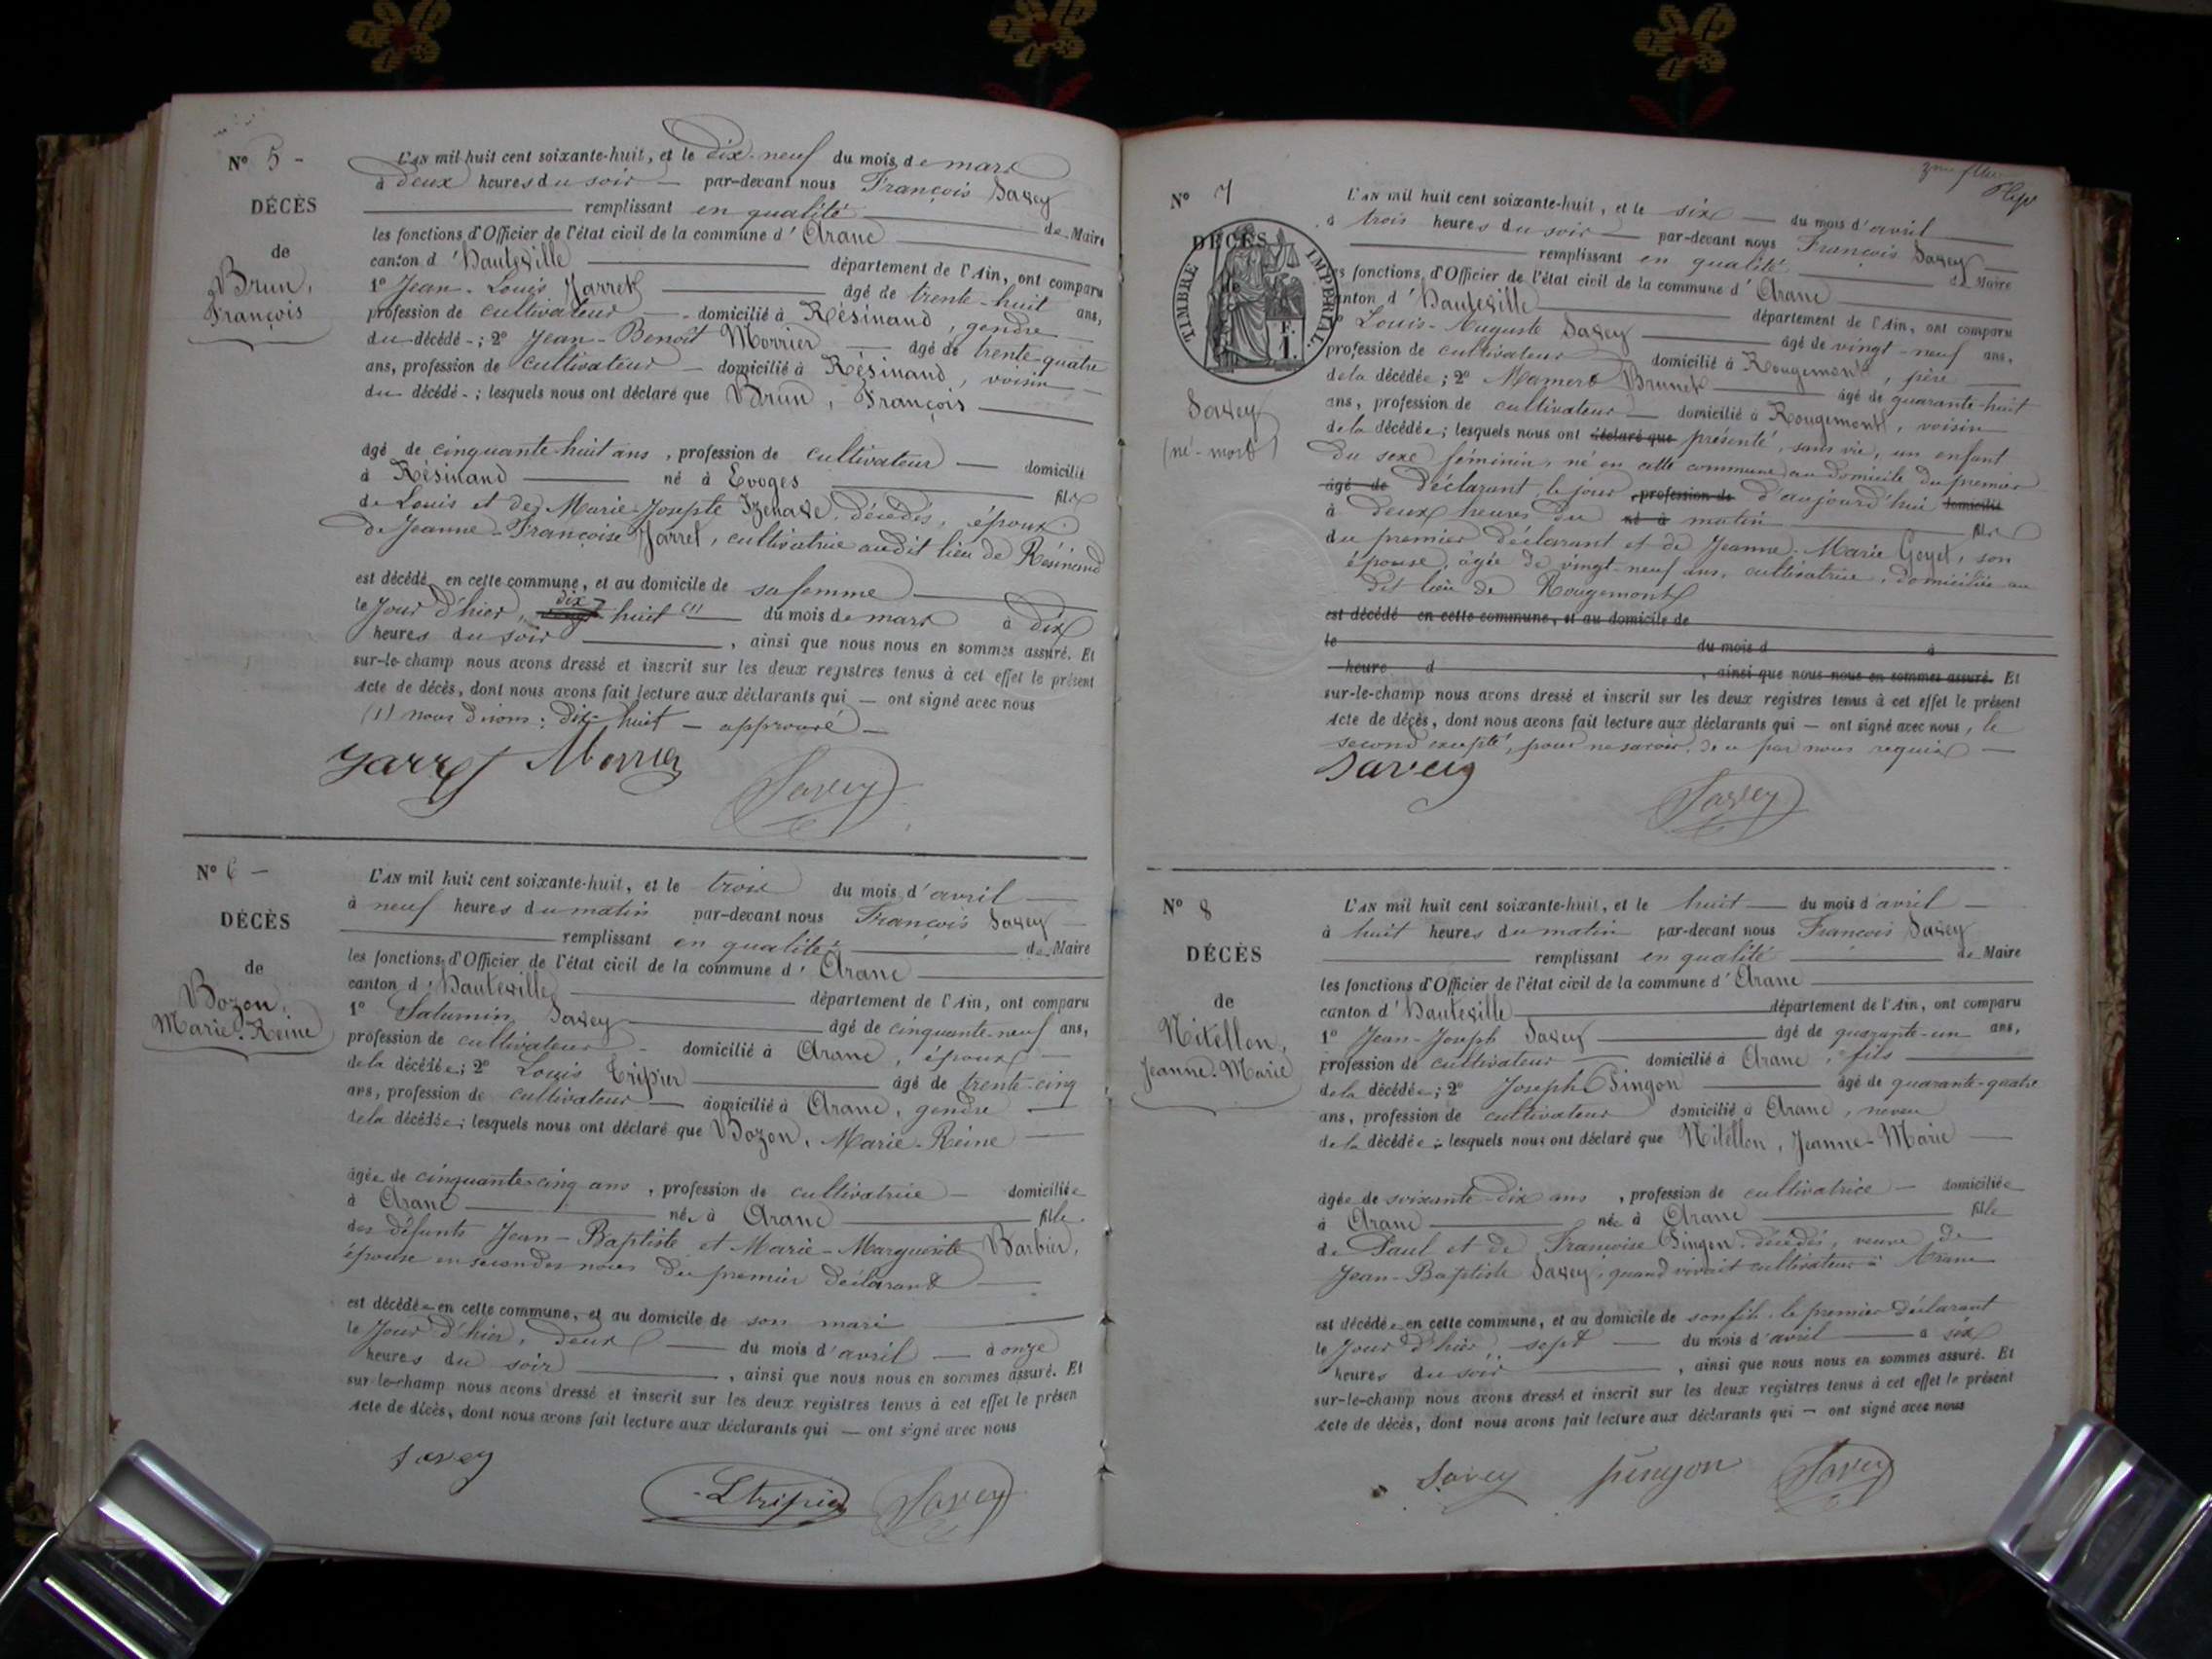 N° 5 -
DÉCÈS
de
Brun,
François
L'AN mil huit cent soixante-huit, et le dix-neuf du mois de mars
à deux heures du soir — par-devant nous François Savey
remplissant en qualité de Maire
les fonctions d'Officier de l'état civil de la commune d'Aranc
canton d'Hauteville département de l'Ain, ont comparu
1° Jean-Louis Jarret âgé de trente-huit ans,
profession de cultivateur — domicilié à Résinand, gendre
du décédé -; 2° Jean-Benoît Morrier — âgé de trente-quatre
ans, profession de cultivateur — domicilié à Résinand, voisin
du décédé -; lesquels nous ont déclaré que Brun, François
âgé de cinquante-huit ans, profession de cultivateur — domicilié
à Résinand né à Evoges fils
de Louis et de Marie-Josepte Izenave, décédés, époux
de Jeanne-Françoise Jarret, cultivatrice audit lieu de Résinand
est décédé en cette commune, et au domicile de sa femme
le jour d'hier, dix huit (1) — du mois de mars à dix
heures du soir, ainsi que nous nous en sommes assuré. Et
sur-le-champ nous avons dressé et inscrit sur les deux registres tenus à cet effet le présent
Acte de décès, dont nous avons fait lecture aux déclarants qui — ont signé avec nous
(1) nous disons: dix-huit — approuvé —
Jarret Morrier Savey
N° 6 -
DÉCÈS
de
Bozon,
Marie-Reine
L'AN mil huit cent soixante-huit, et le trois du mois d'avril
à neuf heures du matin par-devant nous François Savey
remplissant en qualité de Maire
les fonctions d'Officier de l'état civil de la commune d'Aranc
canton d'Hauteville département de l'Ain, ont comparu
1° Saturnin Savey âgé de cinquante-neuf ans,
profession de cultivateur - domicilié à Aranc, époux
de la décédée; 2° Louis Tripier âgé de trente-cinq
ans, profession de cultivateur — domicilié à Aranc, gendre
de la décédée; lesquels nous ont déclaré que Bozon, Marie-Reine
âgée de cinquante-cinq ans, profession de cultivatrice — domiciliée
à Aranc née à Aranc fille
des défunts Jean-Baptiste et Marie-Marguerite Barbier,
épouse en secondes noces du premier déclarant
est décédée en cette commune, et au domicile de son mari
le jour d'hier, deux — du mois d'avril — à onze
heures du soir, ainsi que nous nous en sommes assuré. Et
sur-le-champ nous avons dressé et inscrit sur les deux registres tenus à cet effet le présen
Acte de décès, dont nous avons fait lecture aux déclarants qui — ont signé avec nous
Savey
Ltripier Savey
N° 7
DÉCÈS
TIMBRE IMPÉRIAL
F.
1.
Savey
(né-mort)
L'AN mil huit cent soixante-huit, et le six — du mois d'avril
à trois heures du soir — par-devant nous François Savey
remplissant en qualité de Maire
les fonctions d'Officier de l'état civil de la commune d'Aranc
canton d'Hauteville département de l'Ain, ont comparu
1° Louis-Auguste Savey âgé de vingt-neuf ans,
profession de cultivateur domicilié à Rougemont, père
de la décédée; 2° Mamert Brunet âgé de quarante-huit
ans, profession de cultivateur — domicilié à Rougemont, voisin
de la décédée; lesquels nous ont déclaré que présenté, sans vie, un enfant
du sexe féminin, né en cette commune au domicile du premier
âgé de déclarant, le jour profession de d'aujourd'hui domicilié
à deux heures du né à matin fils
du premier déclarant et de Jeanne-Marie Goyet, son
épouse, âgée de vingt-neuf ans, cultivatrice, domiciliée au
dit lieu de Rougemont
est décédé en cette commune, et au domicile de
le du mois d à
heure d, ainsi que nous nous en sommes assuré. Et
sur-le-champ nous avons dressé et inscrit sur les deux registres tenus à cet effet le présent
Acte de décès, dont nous avons fait lecture aux déclarants qui — ont signé avec nous, le
second excepté, pour ne savoir, de ce par nous requis —
Savey
Savey
N° 8
DÉCÈS
de
Nitellon,
Jeanne-Marie
L'AN mil huit cent soixante-huit, et le huit — du mois d'avril —
à huit heures du matin par-devant nous François Savey
remplissant en qualité de Maire
les fonctions d'Officier de l'état civil de la commune d'Aranc
canton d'Hauteville département de l'Ain, ont comparu
1° Jean-Joseph Savey âgé de quarante-un ans,
profession de cultivateur — domicilié à Aranc, fils
de la décédée; 2° Joseph Pingon âgé de quarante-quatre
ans, profession de cultivateur domicilié à Aranc, neveu
de la décédée; lesquels nous ont déclaré que Nitellon, Jeanne-Marie
âgée de soixante-dix ans, profession de cultivatrice — domiciliée
à Aranc née à Aranc fille
de Paul et de Françoise Pingon, décédés, veuve de
Jean-Baptiste Savey, quand vivait cultivateur à Aranc
est décédée en cette commune, et au domicile de son fils, le premier déclarant
le jour d'hier, sept — du mois d'avril — à six
heures du soir, ainsi que nous nous en sommes assuré. Et
sur-le-champ nous avons dressé et inscrit sur les deux registres tenus à cet effet le présent
Acte de décès, dont nous avons fait lecture aux déclarants qui — ont signé avec nous
Savey pingon Savey